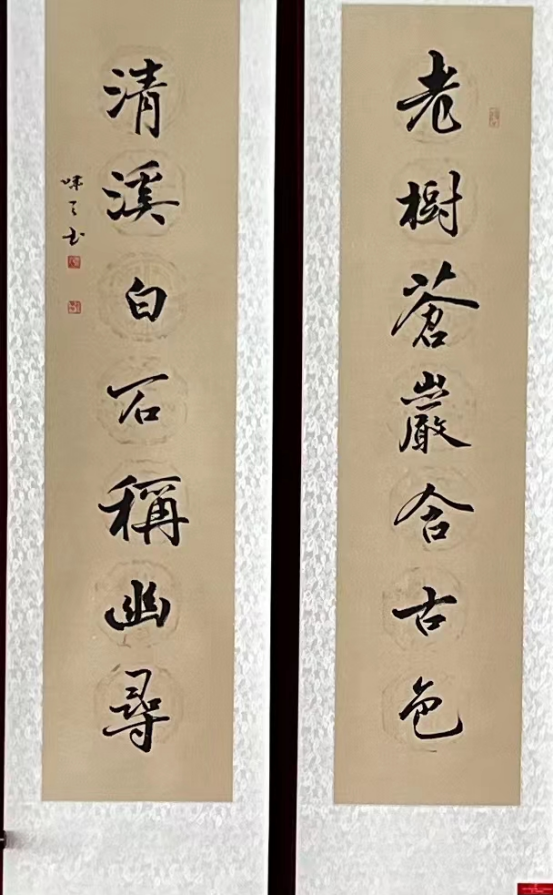 老樹蒼巖含古色
清溪白石稱幽尋
味天书